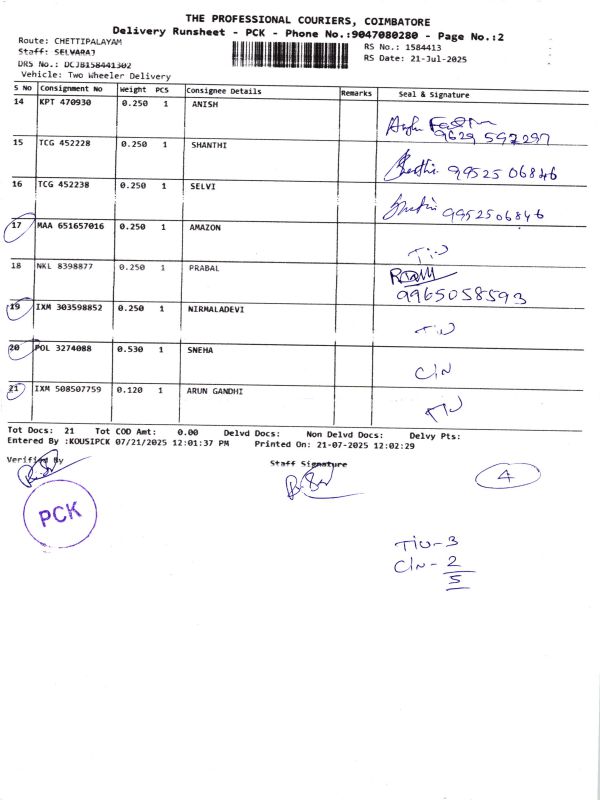 THE PROFESSIONAL COURIERS, COIMBATORE
Delivery Runsheet - PCK - Phone No.:9047080280 - Page No.:2
Route: CHETTIPALAYAM
Staff: SELVARAJ
DRS No.: DCJB158441302
Vehicle: Two Wheeler Delivery
RS No.: 1584413
RS Date: 21-Jul-2025
S No Consignment No Weight PCS Consignee Details Remarks Seal & Signature
14 KPT 470930 0.250 1 ANISH
9629 597297
15 TCG 452228 0.250 1 SHANTHI
Shanthi 99525 06846
16 TCG 452238 0.250 1 SELVI
9952506846
17 MAA 651657016 0.250 1 AMAZON
TIU
18 NKL 8398877 0.250 1 PRABAL
9965058593
19 IXM 303598852 0.250 1 NIRMALADEVI
TIU
20 POL 3274088 0.530 1 SNEHA
CIN
21 IXM 508507759 0.120 1 ARUN GANDHI
TIU
Tot Docs: 21 Tot COD Amt: 0.00 Delvd Docs: Non Delvd Docs: Delvy Pts:
Entered By :KOUSIPCK 07/21/2025 12:01:37 PM Printed On: 21-07-2025 12:02:29
Verified By
Staff Signature
4
PCK
TIU-3
CIN-2
5